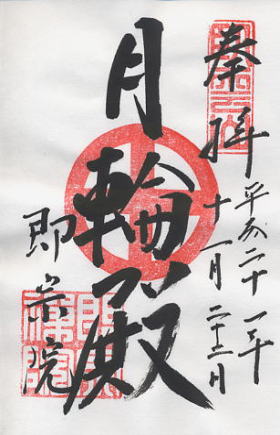 奉拝
平成二十一年
十一月二十三日
月輪殿
即宗院